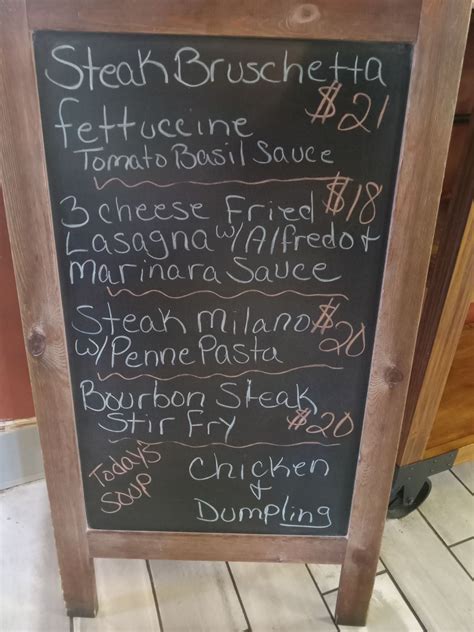 Steak Bruschetta
fettuccine $21
Tomato Basil Sauce
3 cheese Fried $18
Lasagna w/Alfredo +
Marinara Sauce
Steak Milano $20
w/Penne Pasta
Bourbon Steak
Stir Fry $20
Today's
Soup
Chicken
+
Dumpling